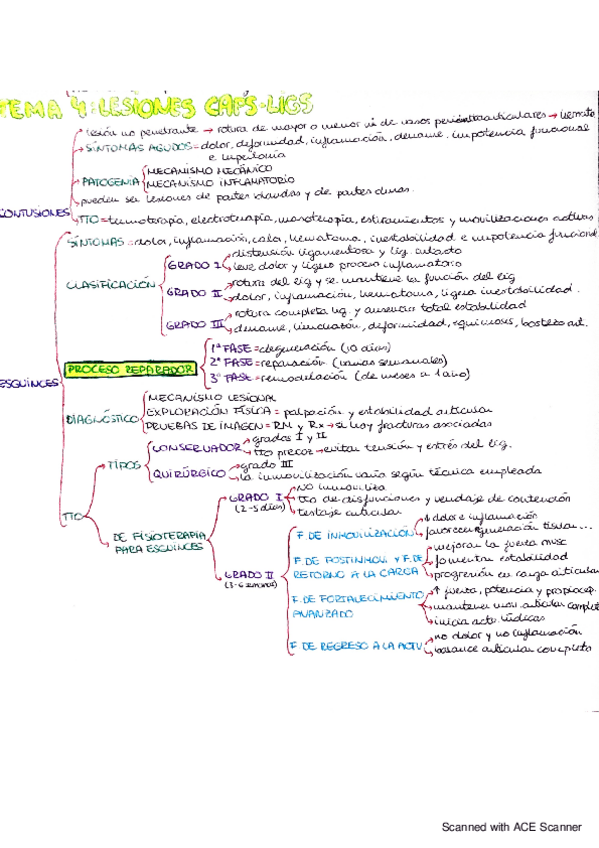 TEMA 4: LESIONES CAPS-LIGS
lesión no penetrante → rotura de mayor o menor nº de vasos periarticulares →
SÍNTOMAS AGUDOS = dolor, deformidad, inflamación, derrame, impotencia funcional
e hipertonía
PATOGENIA
MECANISMO MECÁNICO
MECANISMO INFLAMATORIO
pueden ser lesiones de partes blandas y de partes duras
CONTUSIONES
TTO = termoterapia, electroterapia, masoterapia, estiramientos y movilizaciones activas
SÍNTOMAS = dolor, inflamación, calor, hematoma, inestabilidad e impotencia funcional
CLASIFICACIÓN
GRADO I
distensión ligamentosa y lig. intacto
leve dolor y ligero proceso inflamatorio
GRADO II
rotura del lig y se mantiene la función del lig
dolor, inflamación, hematoma, ligera inestabilidad.
GRADO III
rotura completa lig. y ausencia total estabilidad
derrame, hinchazón, deformidad, equimosis, bostezo art.
PROCESO REPARADOR
1ª FASE = degeneración (10 días)
2ª FASE = reparación (varias semanas)
3ª FASE = remodelación (de meses a 1 año)
ESGUINCES
DIAGNÓSTICO
MECANISMO LESIONAL
EXPLORACIÓN FÍSICA = palpación y estabilidad articular
PRUEBAS DE IMAGEN = RM y Rx → si hay fracturas asociadas
TTO
TIPOS
CONSERVADOR
grados I y II
tto precoz → evitar tensión y estrés del lig.
QUIRÚRGICO
grado III
la inmovilización varía según técnica empleada
DE FISIOTERAPIA
PARA ESGUINCES
GRADO I
(2-5 días)
NO inmoviliza
tto de disfunciones y vendaje de contención
testaje articular
GRADO II
F. DE INMOVILIZACIÓN
↓ dolor e inflamación
favorecer regeneración tisular...
F. DE POSTINMOV. Y F. DE
RETORNO A LA CARGA
mejorar la fuerza musc
fomentar estabilidad
progresión en carga articular
F. DE FORTALECIMIENTO
AVANZADO
↑ fuerza, potencia y propiocep.
mantener mov. articular completo
inicia activ. lúdicas
F DE REGRESO A LA ACTIV
no dolor y no inflamación
balance articular completo
Scanned with ACE Scanner